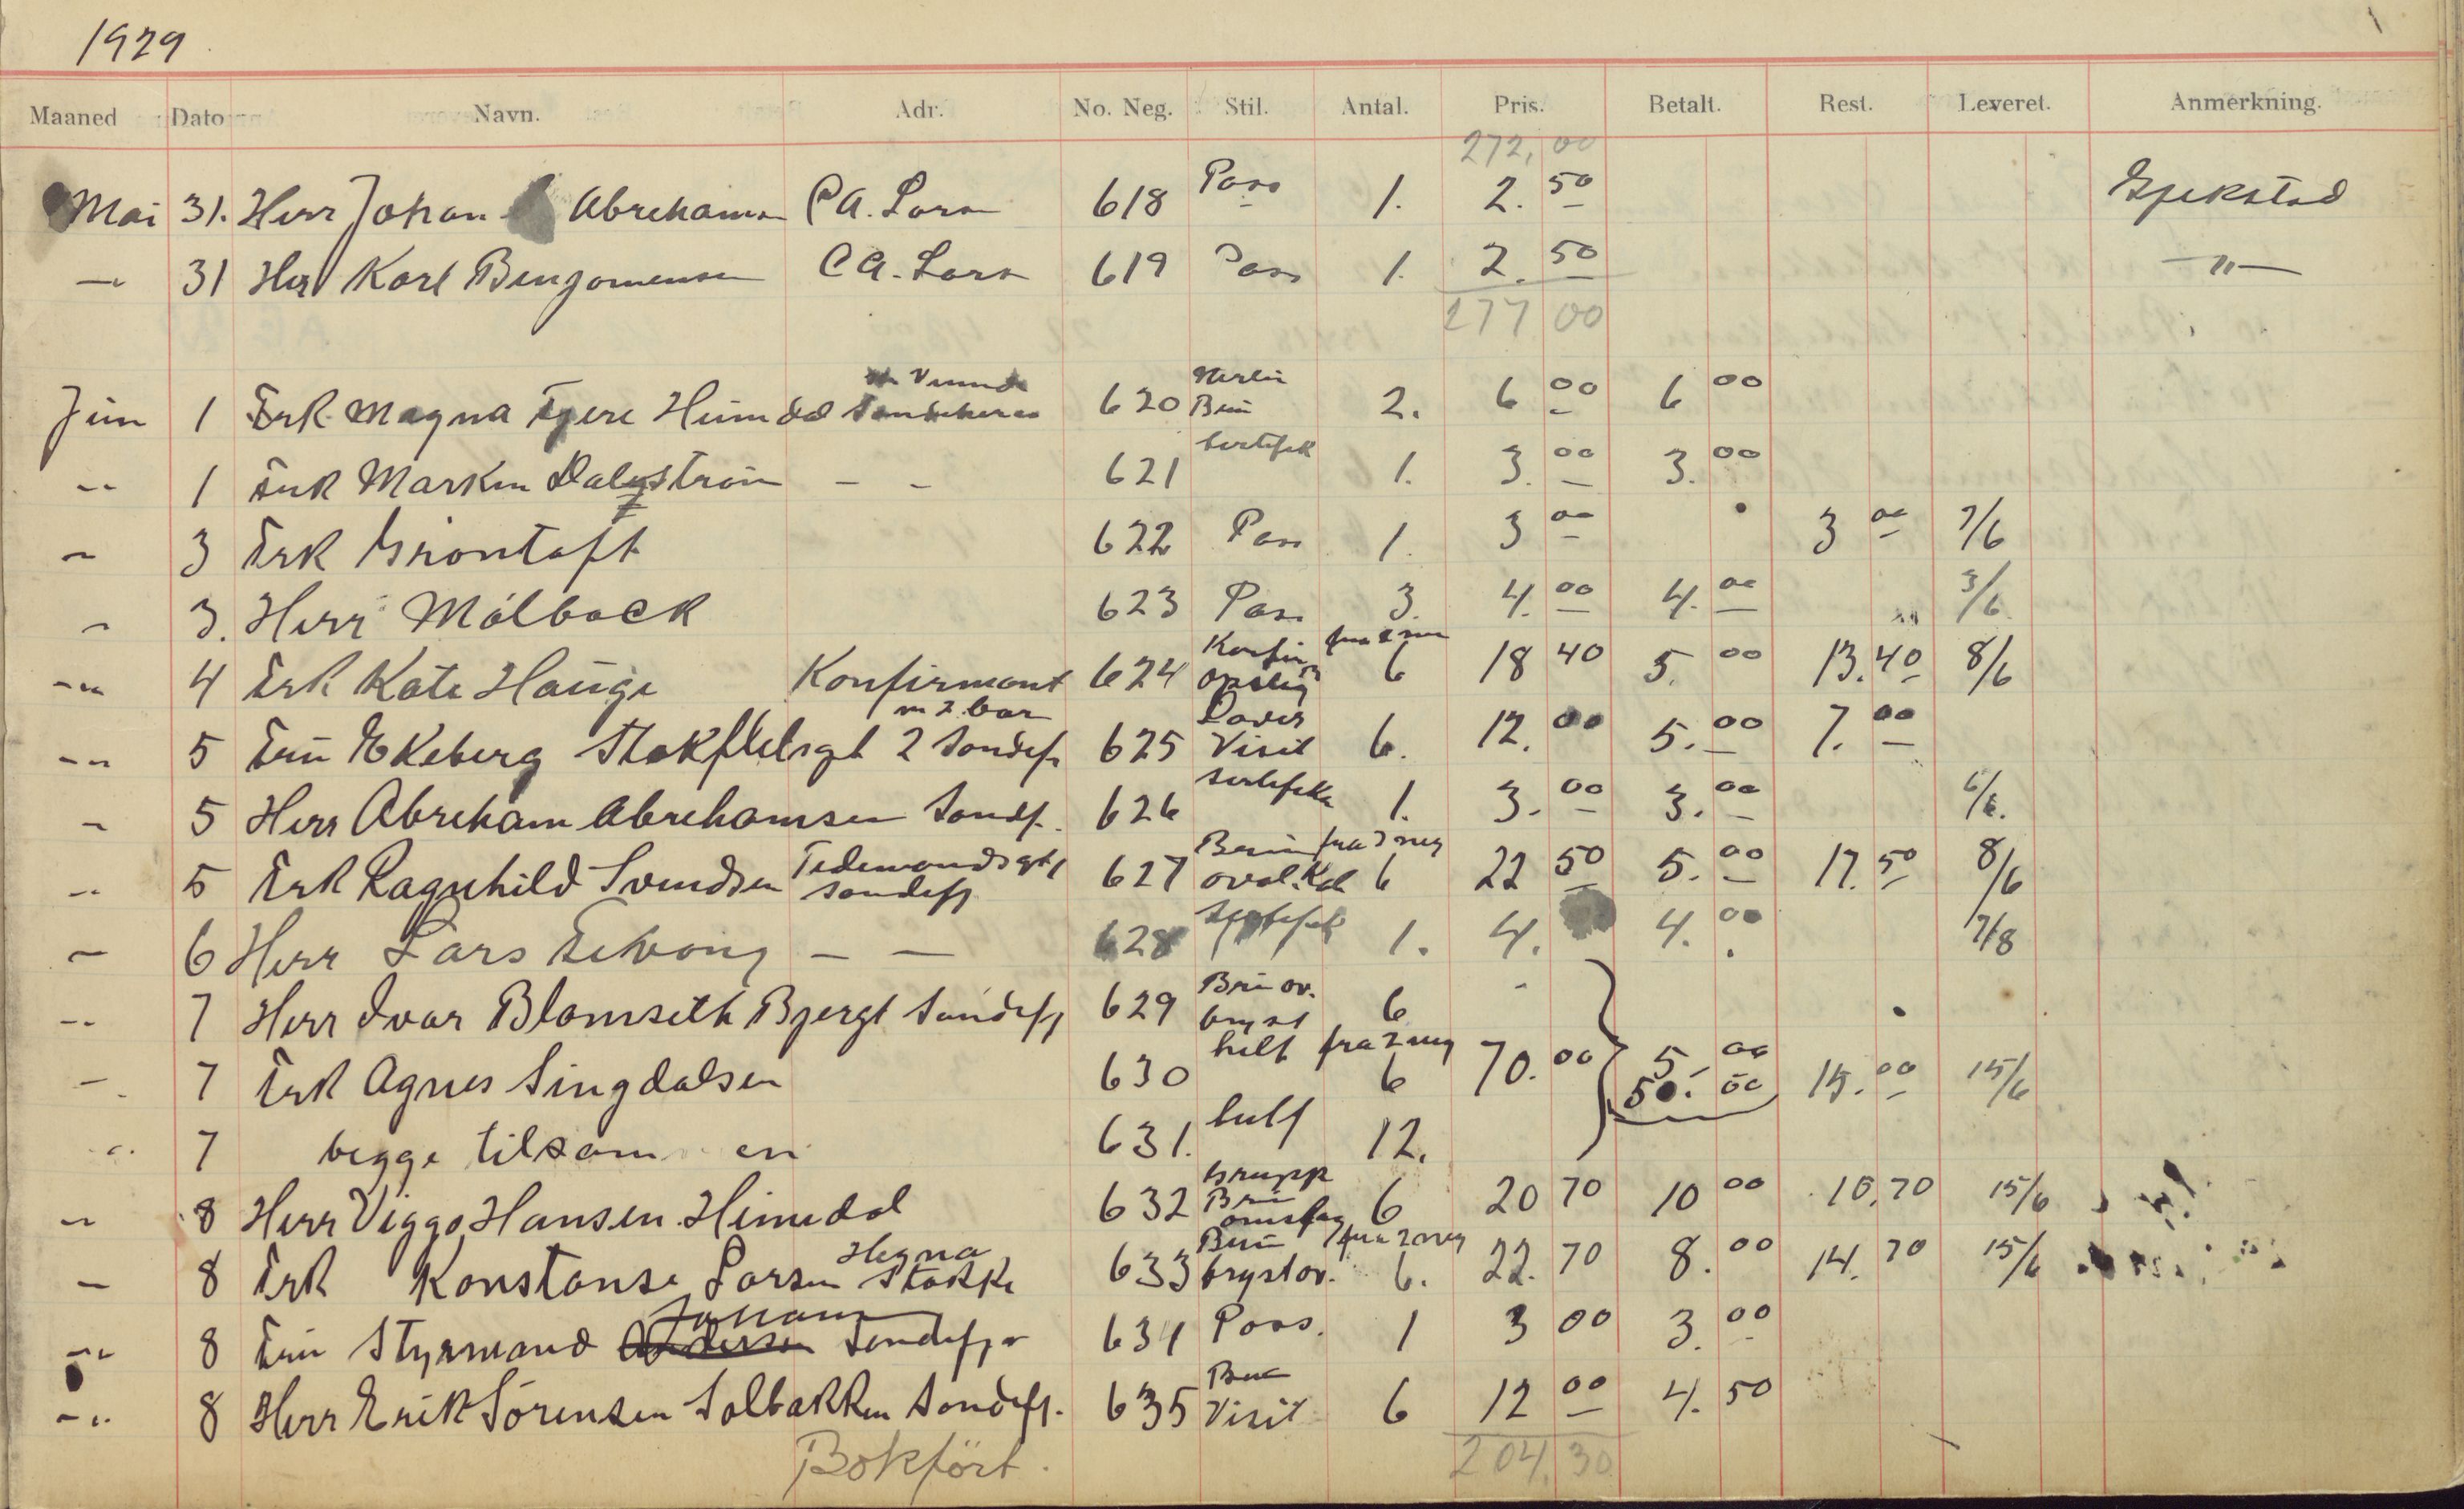 1929
Maaned Dato Navn. Adr. No. Neg. Stil. Antal. Pris. Betalt. Rest. Leveret. Anmerkning.
272,00
Mai 31. Herr Johan Abrehamsn C A. Larn 618 Pass 1. 2.50
31 Herr Karl Benjamensen C A. Larn 619 Pass 1. 2.50 -"-
277 00
Jun 1 Frk Magna 620 2. 6 00 6 00
1 Frk 621 1. 3.00 3.00
3 Frk Grøntoft 622 Pass 1. 3 00 3 00 7/6
3. Herr Mólback 623 Pass 3. 4.00 4.00 3/6
fra 2 neg
4 Frk Kate Hauge Konfirmant 624 6 18 40 5.00 13.40 8/6
m 2 barn
5 Fru Ekeberg 2 Sandefj 625 Visit 6. 12.00 5.00 7.00
5 Herr Abreham Abrehamsen Sandf. 626 1. 3.00 3.00 6/6.
fra 3 neg
5 Frk Ragnhild Svendsen Tidemandsgt Sandefj 627 oval. 6 22 50 5.00 17.50 8/6
6 Herr Lars - - 628 1. 4. 4.00 7/8
Brun ov.
7 Herr Ivar Blomseth Bjergt Sandefj 629 bryst 6
helf fra 2 neg
7 Frk Agnes Singdalsen 630 6 70.00 5.00
50.00 15.00 15/6
7 begge tilsammen 631. helf 12.
Grupp
8 Herr Viggo Hansen Himdal 632 Brun omslag 6 20 70 10 00 10,70 15/6
Hegna Brun fra 2 neg
8 Frk Konstanse Larsen Stokke 633 brystov. 6. 22.70 8.00 14.70 15/6
Johann
8 Fru Styrmand Andersen Sandefjor 634 Pass. 1 3 00 3.00
Brun
8 Herr Erik Sörensen Solbakken Sandefj. 635 Visit 6 12 00 4.50
Bokfört. 204,30